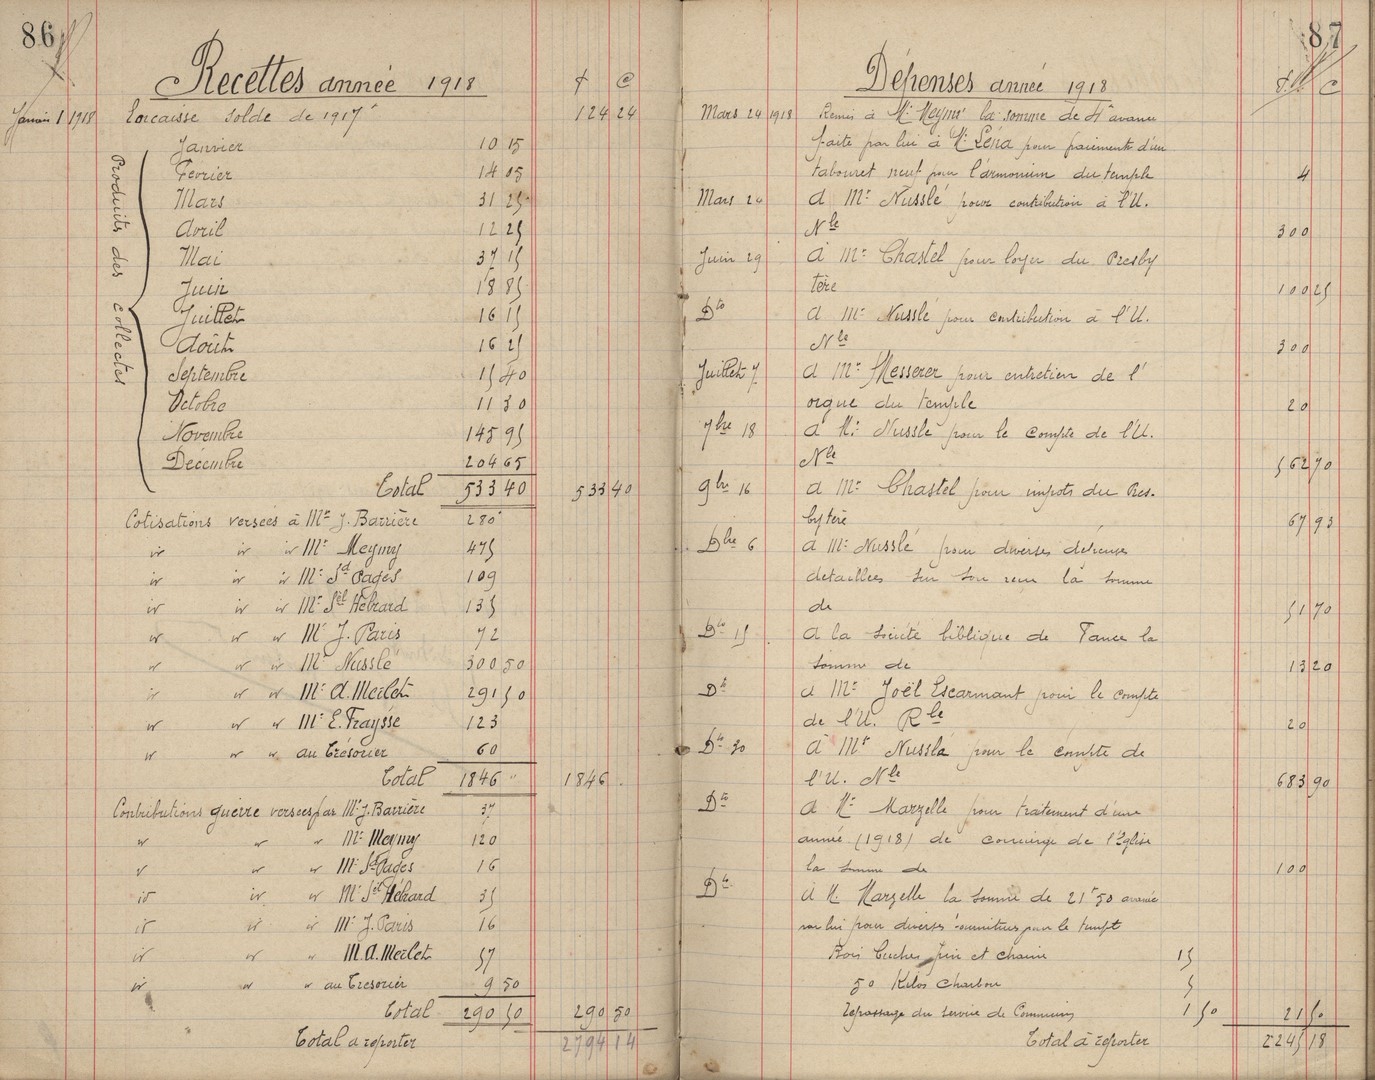 86
Recettes année 1918
f c
Janvier 1 1918 Encaisse solde de 1917 124 24
Produits des collectes
Janvier 10 15
Fevrier 14 05
Mars 31 25
Avril 12 25
Mai 37 15
Juin 18 85
Juillet 16 15
Août 16 25
Septembre 15 40
Octobre 11 30
Novembre 145 95
Decembre 204 65
Total 533 40 533 40
Cotisations versées à Mr J. Barrière 280
" " " Mr Meymy 475
" " " Mr Sd Pagès 109
" " " Mr Sël Hébrard 135
" " " Mr J. Paris 72
" " " Mr Nusslé 300 50
" " " Mr A. Merlet 291 50
" " " Mr E. Fraysse 123
" " " au Trésorier 60
Total 1846 " 1846
Contributions guerre versées par Mr J. Barrière 37
" " " Mr Meymy 120
" " " Mr Sd Pagès 16
" " " Mr Sël Hébrard 35
" " " Mr J. Paris 16
" " " M. A. Merlet 57
" " " au Tresorier 9 50
Total 290 50 290 50
Total a reporter 2794 14
87
Dépenses année 1918
f c
Mars 24 1918 Remis à Mr Meymy la somme de 4f avancée
faite par lui à Mr Léna pour paiement d'un
tabouret neuf pour l'armonium du temple 4
Mars 24 à Mr Nusslé pour contribution à l'U.
Nle 300
Juin 29 à Mr Chastel pour loyer du Presby
tère 100 25
Dto à Mr Nusslé pour contribution à l'U.
Nle 300
Juillet 7 à Mr Messerer pour entretien de l'
orgue du temple 20
7bre 18 à Mr Nusslé pour le compte de l'U.
Nle 562 70
9bre 16 à Mr Chastel pour impots du Pres.
bytère 67 93
Dbre 6 à Mr Nusslé pour diverses dépenses
detaillées sur son reçu la somme
de 51 70
Dto 15 à la société biblique de France la
somme de 13 20
Dto à Mr Joël Escarmant pour le compte
de l'U. Rle 20
Dto 30 à Mr Nusslé pour le compte de
l'U. Nle 683 90
Dto à Mr Marzelle pour traitement d'une
année (1918) de concierge de l'Eglise
la somme de 100
Dto à M. Marzelle la somme de 21f50 avancée
par lui pour diverses fournitures pour le temple
Trois buches pin et chaine 15
50 Kilos charbon 5
Repassage du service de Communion 1 50 21 50
Total à reporter 2245 18